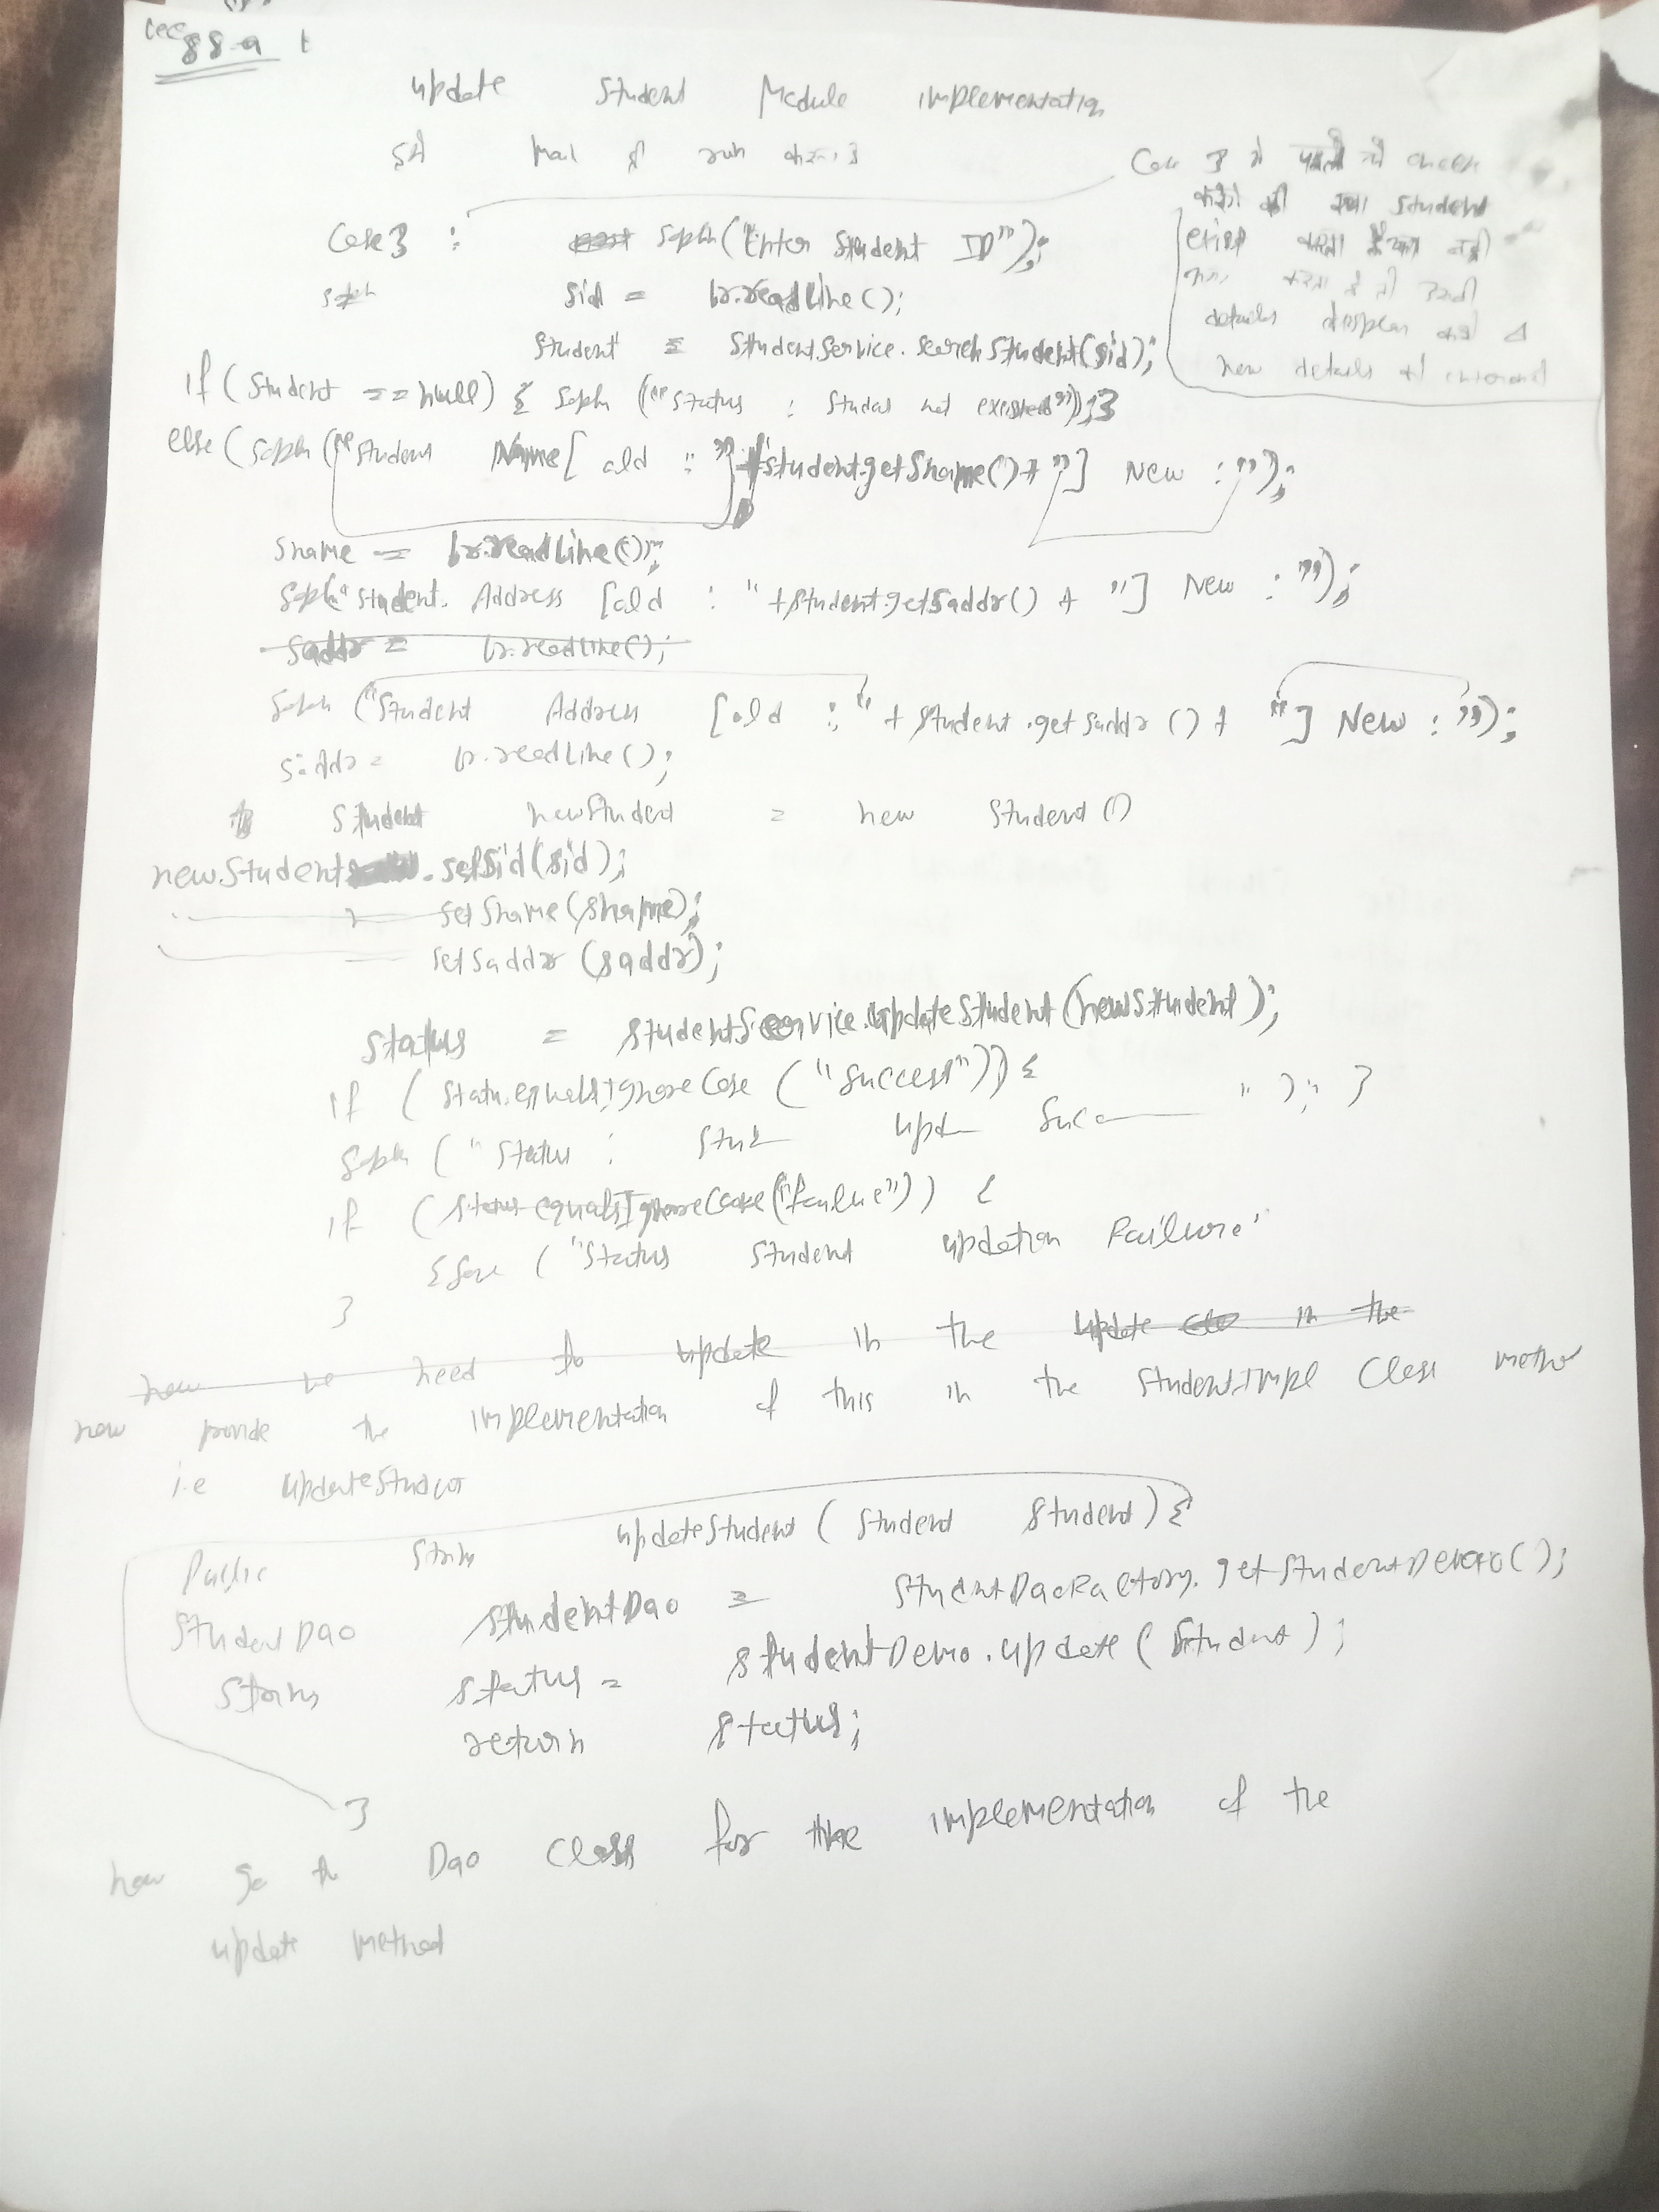 Lec 88-a
update Student Module implementation
run करना 3
Case 3 में पहले तो check
करेंगे की क्या Student
exist करता है या नहीं
करता है तो उसकी
details display करो &
new details
Case 3 : Sopln("Enter Student ID");
sid = br.readLine();
Student = StudentService.searchStudent(sid);
if (Student == null) { Sopln ("Status : Student not existed"); }
else ( Sopln ("Student Name [ old : " + student.getSname() + " ] New : ");
sname = br.readLine();
Sopln("Student. Address [old : " + student.getSaddr() + " ] New : ");
saddr = br.readLine();
Sopln ("Student Address [old : " + Student.getSaddr () + " ] New : ");
saddr = br.readLine();
Student newStudent = new Student ()
newStudent.setSid(sid);
setSname(sname);
setSaddr (saddr);
Status = StudentService.UpdateStudent (newStudent);
if ( Status.equalsIgnoreCase ("Success")) {
Sopln ( "Status : Stu upd Succ " ); }
if ( Status equalsIgnoreCase("failure")) {
( "Status Student updation Failure"
}
now we need to update in the update in the
now provide the implementation of this in the StudentImpl Class method
i.e updateStudent
Public String updateStudent ( Student Student) {
StudentDao StudentDao = StudentDaoFactory.getStudentDemo();
String status = studentDemo.update ( Student );
return status;
}
now go to Dao Class for the implementation of the
update method